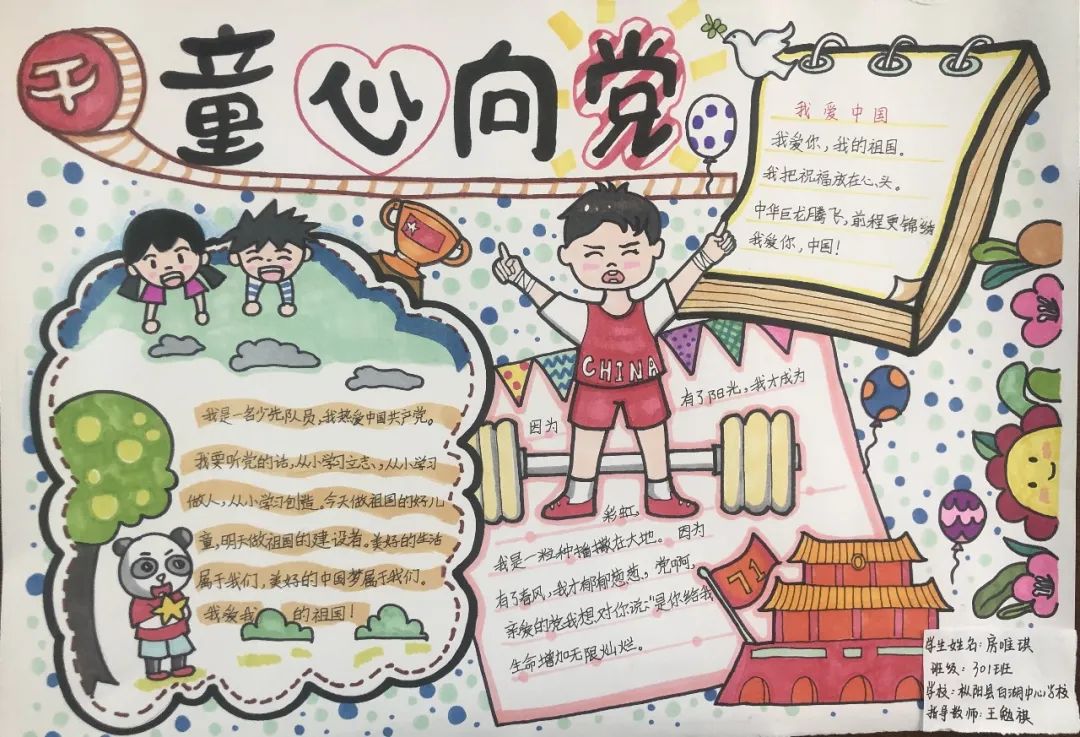 千
童心向党
我爱中国
我爱你，我的祖国。
我把祝福放在心头。
中华巨龙腾飞，前程更锦绣
我爱你，中国！
CHINA
我是一名少先队员，我热爱中国共产党。
我要听党的话，从小学习立志、从小学习
做人，从小学习创造。今天做祖国的好儿
童，明天做祖国的建设者。美好的生活
属于我们，美好的中国梦属于我们。
我爱我的祖国！
因为
有了阳光，我才成为
彩虹，
我是一粒种播撒在大地。因为
有了春风，我才郁郁葱葱，党啊，
亲爱的党我想对你说：“是你给我
生命增加无限灿烂。
71
学生姓名：房唯琪
班级：301班
学校：枞阳县白湖中心学校
指导教师：王勉祺